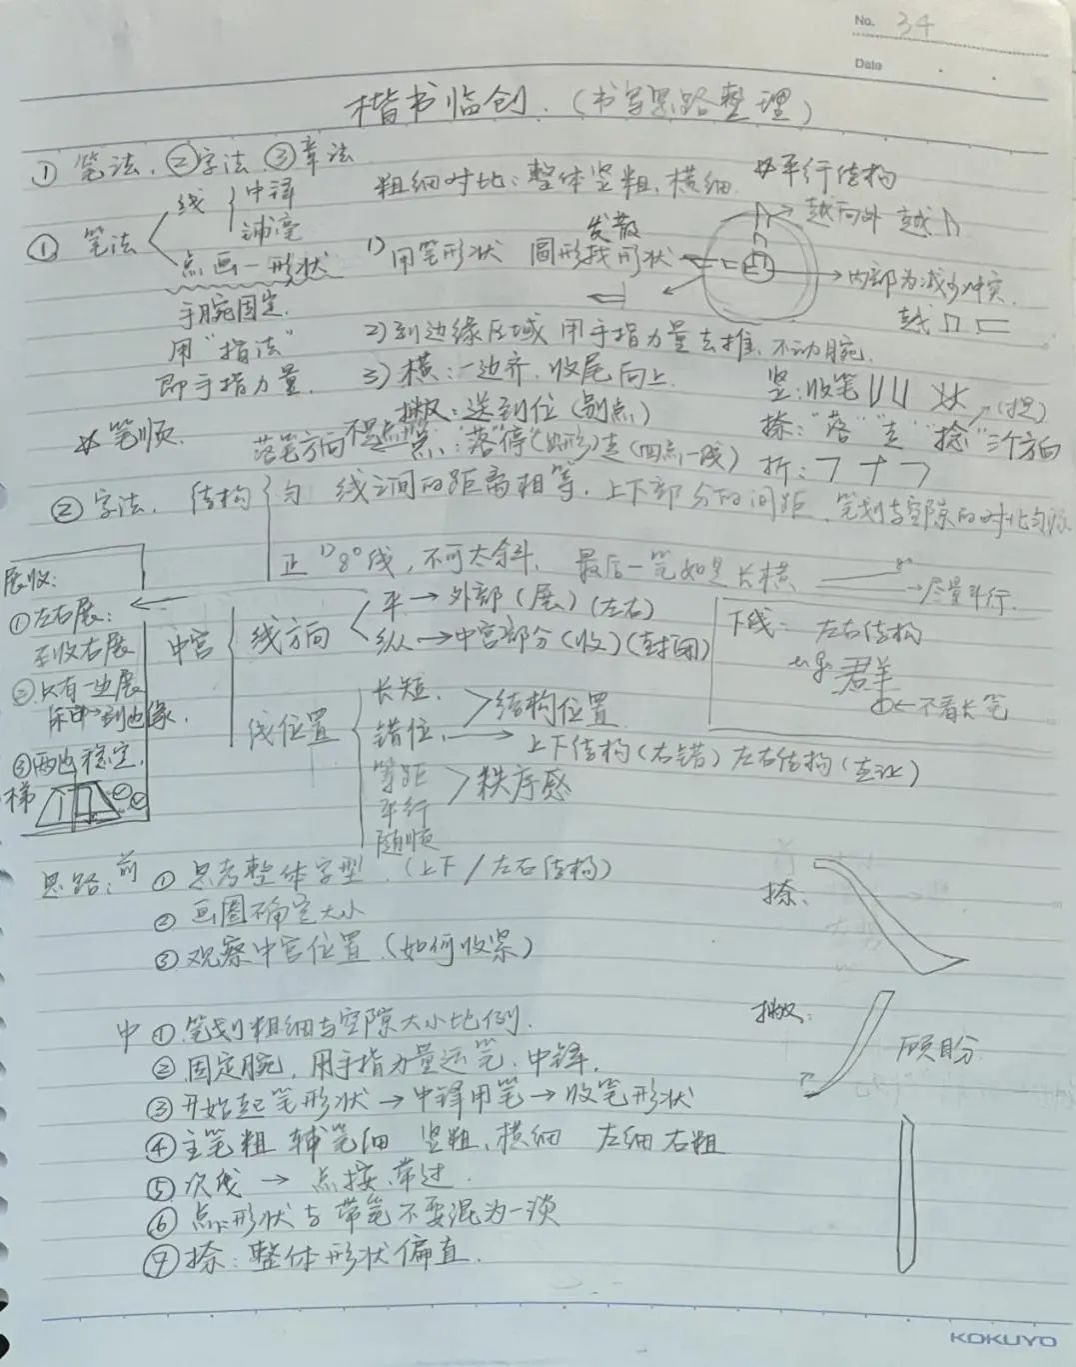 No. 34
Date
楷书临创.(书写思路整理)
① 笔法.②字法.③章法
粗细对比:整体竖粗.横细. 平行结构
① 笔法
线 中锋
铺毫
点画一形状
手腕固定.
用“指法”
即手指力量.
1) 用笔形状 圆形找形状
发散
越向外 越
内部为减少冲突.
越
2) 到边缘区域 用手指力量去推.不动腕.
3) 横:一边齐.收尾向上. 竖:收笔
撇:送到位(别点) 捺:“落”“走”“捻”三个方向
(捏)
笔顺.
落笔方向
点:“落”停“(出形)走(四点一线) 折:
② 字法. 结构
匀 线之间的距离相等.上下部分的间距.笔划与空隙的对比匀
正 1) 8°线,不可太斜. 最后一笔如是长横
8°
尽量平行.
展收:
①左右展:
左收右展
②只有一边展
到边缘.
③两边稳定.
梯
中宫
线方向
平→外部(展)(左右)
纵→中宫部分(收)(封闭)
下线: 左右结构
eg 群
←不看长笔
线位置
长短.
错位.
结构位置
→上下结构(右错) 左右结构(左让)
等距
平行
随顺
秩序感
思路: 前 ① 思考整体字型.(上下/左右结构)
② 画圈确定大小
③ 观察中宫位置.(如何收紧)
捺:
中 ① 笔划粗细与空隙大小比例.
② 固定腕.用手指力量运笔.中锋.
③ 开始起笔形状→中锋用笔→收笔形状
④ 主笔粗 辅笔细 竖粗、横细 左细右粗
⑤ 次线 → 点按.带过.
⑥ 点.形状与带笔不要混为一谈
⑦ 捺:整体形状偏直.
撇:
KOKUYO